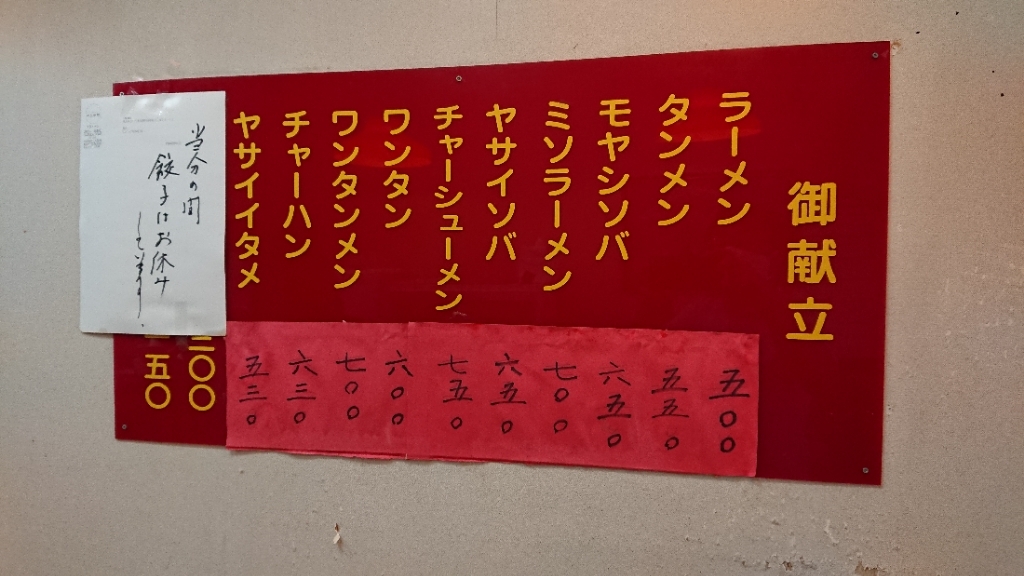 御献立
ラーメン
五〇〇
タンメン
五五〇
モヤシソバ
六五〇
ミソラーメン
七〇〇
ヤサイソバ
六五〇
チャーシューメン
七五〇
ワンタン
六〇〇
ワンタンメン
七〇〇
チャーハン
六三〇
ヤサイイタメ
五三〇
三〇〇
五〇
当分の間
餃子はお休み
しています。